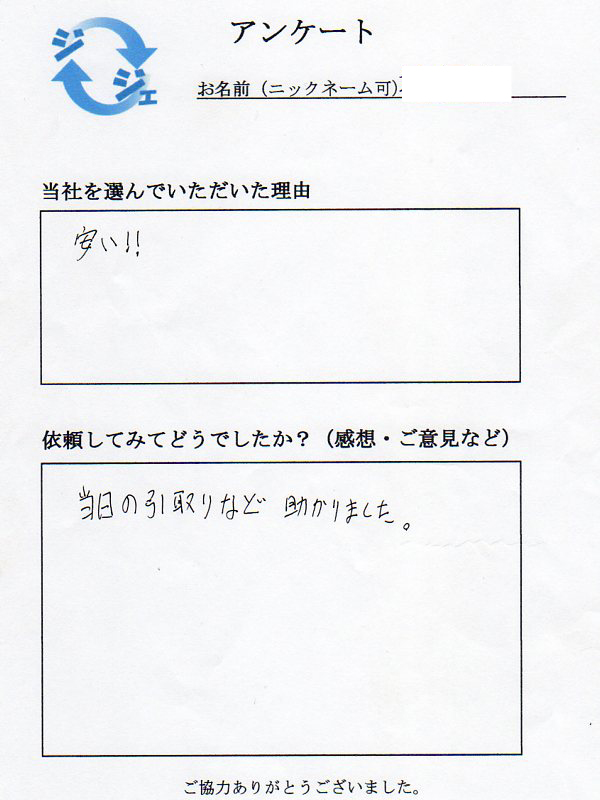 ジジェ
アンケート
お名前（ニックネーム可）
当社を選んでいただいた理由
安い!!
依頼してみてどうでしたか？（感想・ご意見など）
当日の引取りなど 助かりました。
ご協力ありがとうございました。